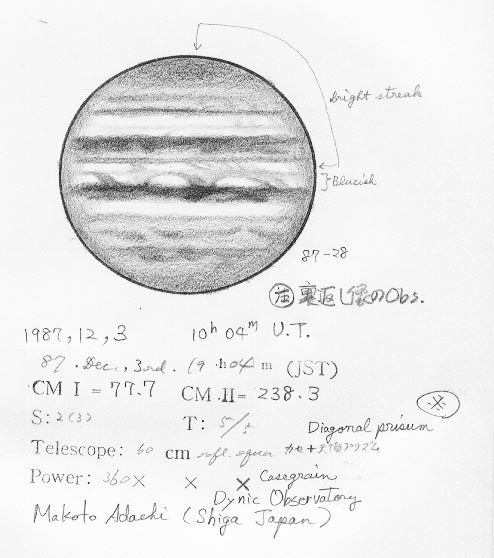 bright streak
Blueish
87-28
注 裏返し像のObs.
1987, 12, 3 10h 04m U.T.
87. Dec., 3rd. 19.h04 m (JST)
CM I = 77.7 CM.II= 238.3
S: 2(3) T: 5/5
Diagonal prisum
Telescope: 60 cm refl. カセ+天頂プリズム
Power: 360× × × Casegrain
Dynic Observatory
Makoto Adachi (Shiga Japan)